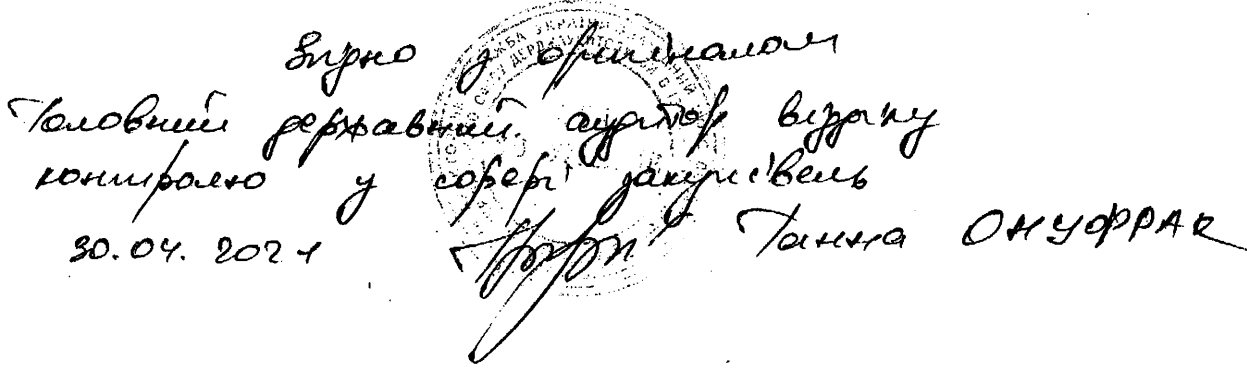 Згідно з оригіналом
Головний державний аудитор відділу
контролю у сфері закупівель
30.04.2021 Ганна ОНУФРАК